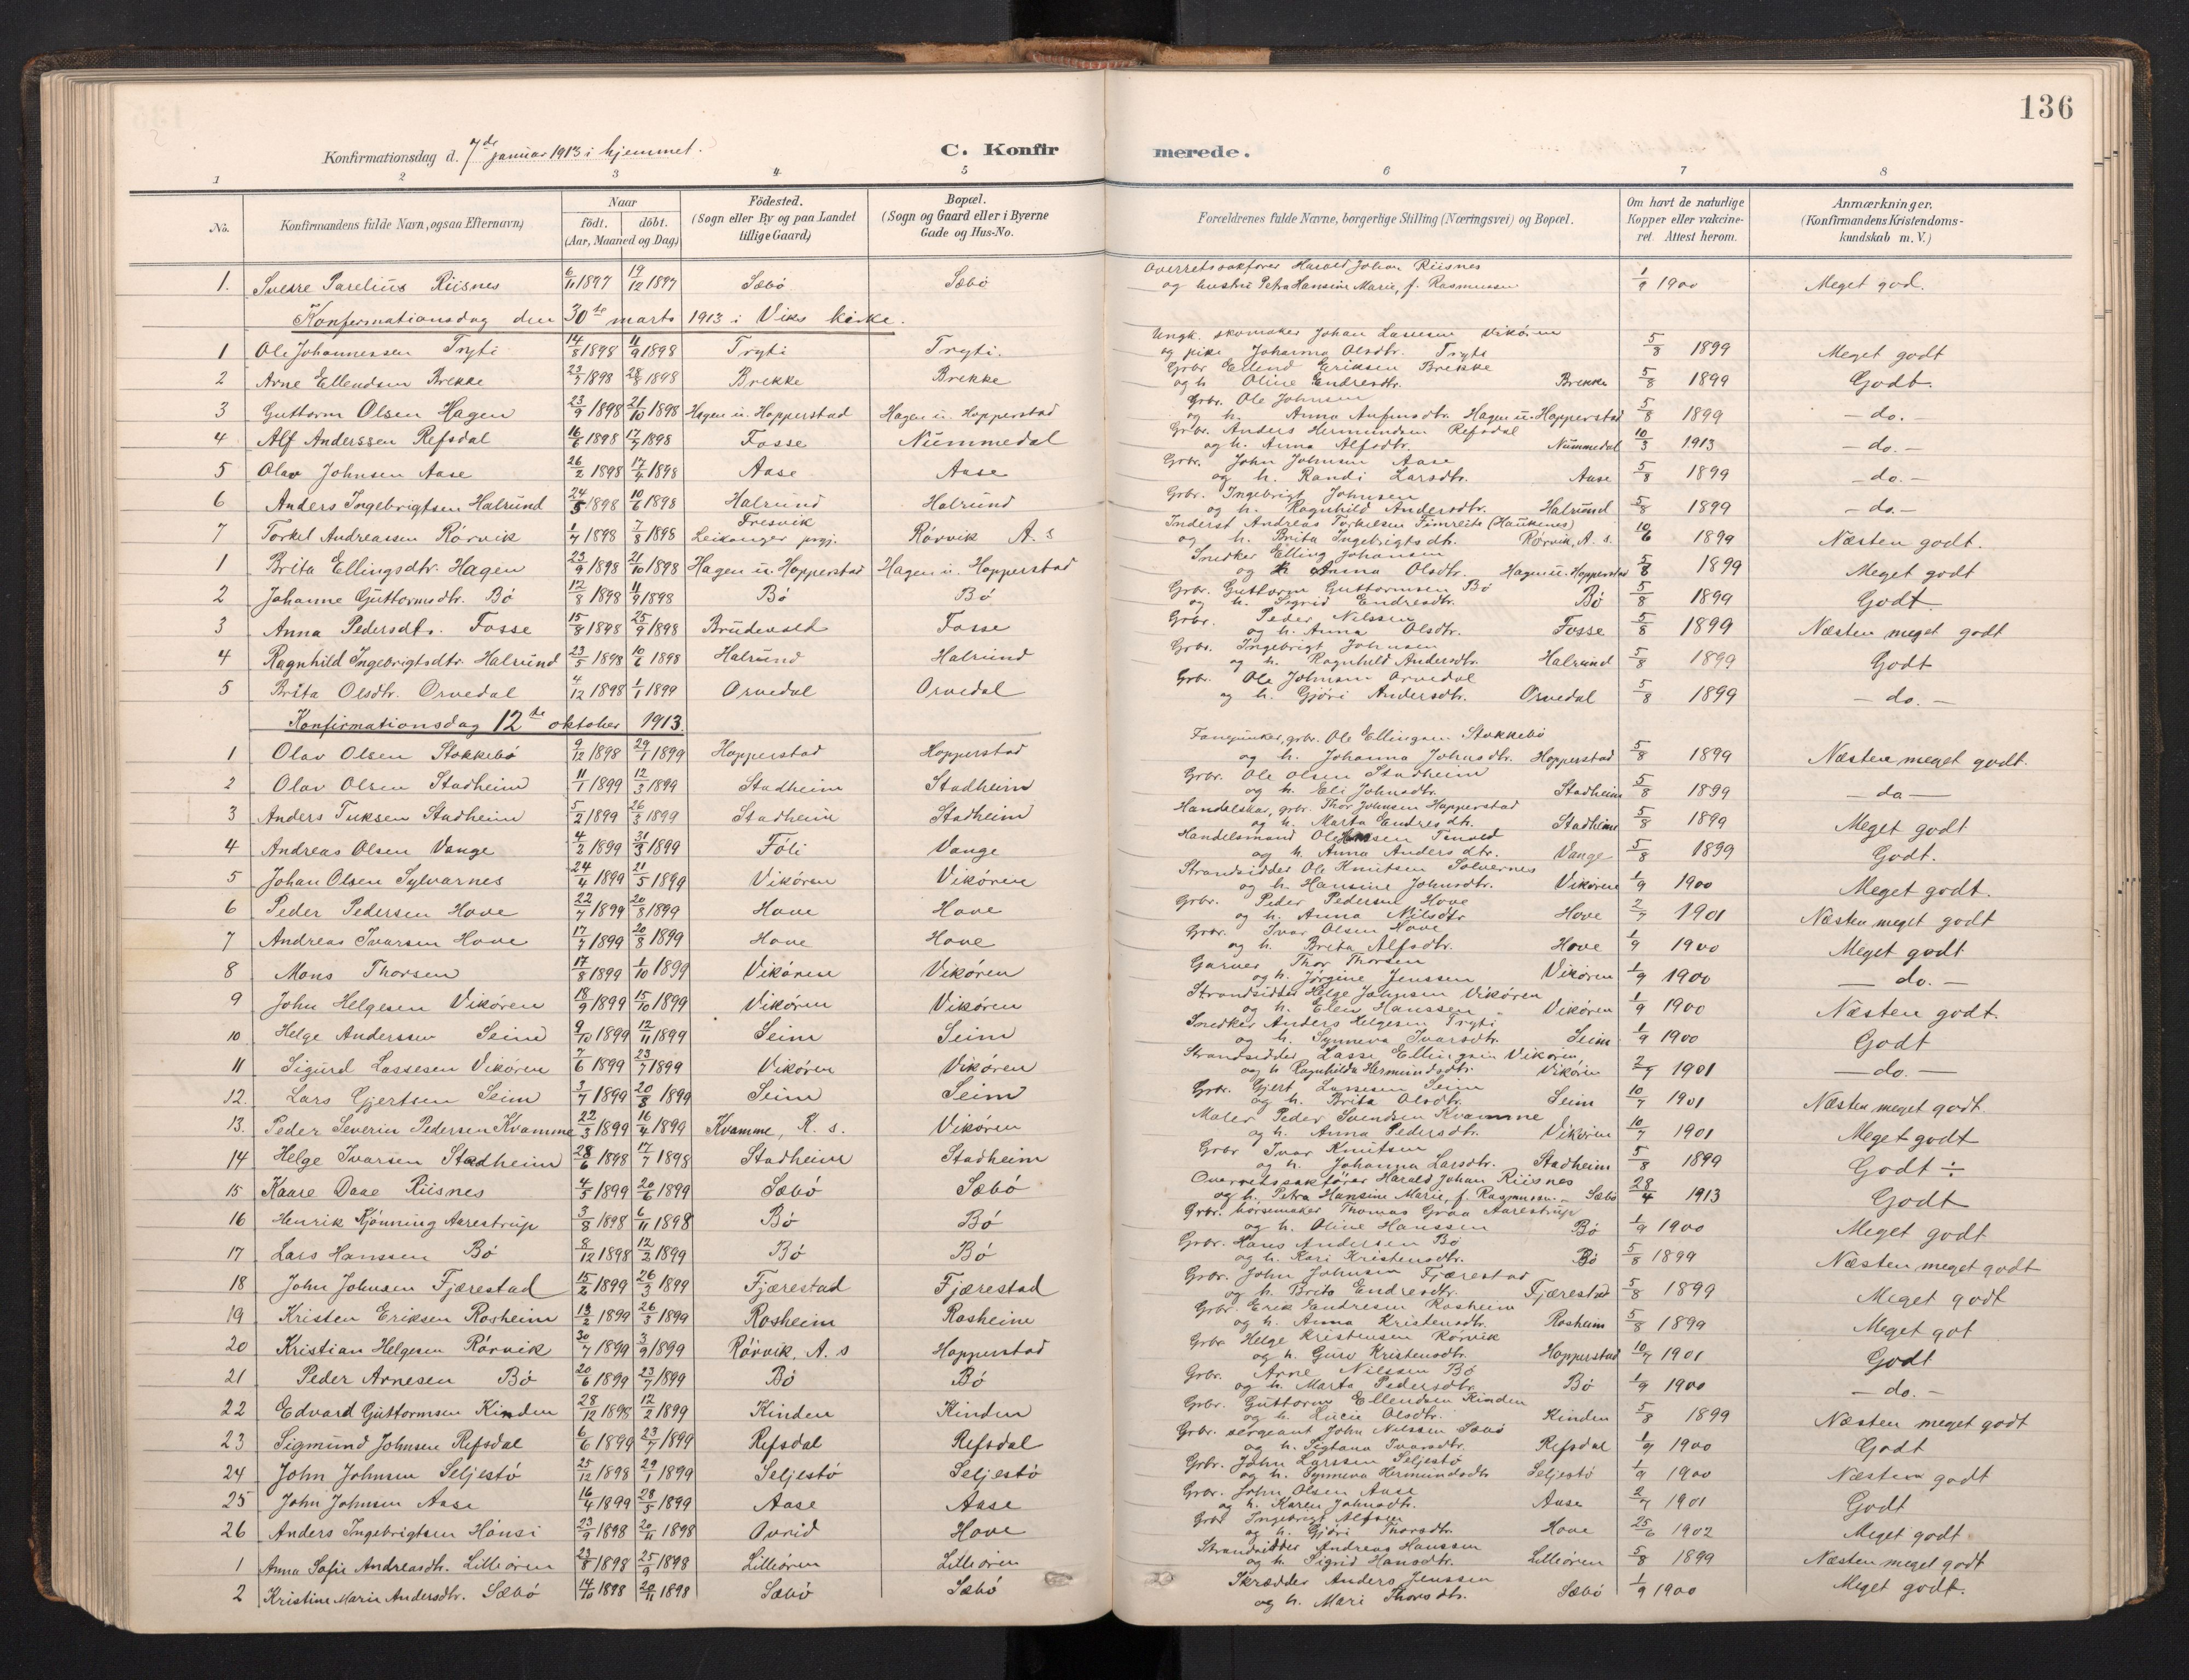 136
Konfirmationsdag d. 7de januar 1913 i hjemmet. C. Konfirmerede.
1 2 3 4 5 6 7 8
No. Konfirmandens fulde Navn, ogsaa Efternavn) Naar födt. döbt. (Aar, Maaned og Dag.) Födested. (Sogn eller By og paa Landet tillige Gaard.) Bopæl. (Sogn og Gaard eller i Byerne Gade og Hus-No. Forældrenes fulde Navne, borgerlige Stilling (Næringsvei) og Bopæl. Om havt de naturlige Kopper eller vakcineret. Attest herom. Anmærkninger. (Konfirmandens Kristendomskundskab m. V.)
1. Sverre Parelius Riisnes 6/11 1897 19/12 1897 Sæbö Sæbö Overretssakförer Harald Johan Riisnes og hustru Petra Hansine Marie, f. Rasmussen 1/9 1900 Meget god.
Konfirmationsdag den 30te marts 1913 i Viks kirke.
1 Ole Johannessen Tryti 14/8 1898 11/9 1898 Tryti Tryti. Ungk. skomaker Johan Lassesen Vikören og pike Johanna Olsdtr. Tryti 5/8 1899 Meget godt
2 Arne Ellendsen Brekke 23/7 1898 28/8 1898 Brekke Brekke Grbr. Ellend Eriksen Brekke og h. Oline Endresdtr. Brekke 5/8 1899 Godt.
3 Guttorm Olsen Hagen 23/9 1898 21/10 1898 Hagen u. Hopperstad Hagen u. Hopperstad Grbr. Ole Johnsen og h. Anna Anfinsdtr. Hagen u. Hopperstad 5/8 1899 - do. -
4 Alf Anderssen Refsdal 16/6 1898 17/7 1898 Fosse Nummedal Grbr. Anders Hermundsen Refsdal og h. Anna Alfsdtr. Nummedal 10/3 1913 - do. -
5 Olav Johnsen Aase 26/2 1898 17/4 1898 Aase Aase Grbr. John Johnsen Aase og h. Randi Larsdtr. Aase 5/8 1899 - do. -
6 Anders Ingebrigtsen Halrund 24/5 1898 10/6 1898 Halrund Halrund Grbr. Ingebrigt Johnsen og h. Ragnhild Andersdtr. Halrund 5/8 1899 - do. -
7 Torkel Andreassen Rörvik 1/7 1898 7/8 1898 Fresvik Leikanger prgj. Rörvik A. s Inderst Andreas Torkelsen Fimreite (Haukenes) og h. Brita Ingebrigtsdtr. Rörvik, A. s. 10/6 1899 Næsten godt.
1 Brita Ellingsdtr. Hagen 23/9 1898 21/10 1898 Hagen u. Hopperstad Hagen u. Hopperstad Snedker Elling Johansen og h. Anna Olsdtr. Hagen u. Hopperstad 5/8 1899 Meget godt
2 Johanne Guttormsdtr. Bö 12/8 1898 11/9 1898 Bö Bö Grbr. Guttorm Guttormsen Bö og h. Sigrid Endresdtr. Bö 5/8 1899 Godt
3 Anna Pedersdtr. Fosse 15/8 1898 25/9 1898 Brudevold Fosse Grbr. Peder Nilssen og h. Anna Olsdtr. Fosse 5/8 1899 Næsten meget godt
4 Ragnhild Ingebrigtsdtr. Halrund 23/5 1898 10/6 1898 Halrund Halrund Grbr. Ingebrigt Johnsen og h. Ragnhild Andersdtr. Halrund 5/8 1899 Godt
5 Brita Olsdtr. Orvedal 4/12 1898 1/1 1899 Orvedal Orvedal Grbr. Ole Johnsen Orvedal og h. Gjöri Andersdtr. Orvedal 5/8 1899 - do. -
Konfirmationsdag 12te oktober 1913.
1 Olav Olsen Stokkebö 9/12 1898 29/1 1899 Hopperstad Hopperstad Fanejunker, grbr. Ole Ellingsen Stokkebö og h. Johanna Johnsdtr. Hopperstad 5/8 1899 Næsten meget godt.
2 Olav Olsen Stadheim 11/1 1899 12/3 1899 Stadheim Stadheim Grbr. Ole Olsen Stadheim og h. Eli Johnsdtr. Stadheim 5/8 1899 - do -
3 Anders Tuksen Stadheim 5/2 1899 26/3 1899 Stadheim Stadheim Handelskar, grbr. Thor Johnsen Hopperstad og h. Marta Endresdtr. Stadheim 5/8 1899 Meget godt
4 Andreas Olsen Vange 4/2 1899 31/3 1899 Föli Vange Handelsmand Ole Hansen Tenold og h. Anna Andersdtr. Vange 5/8 1899 Godt.
5 Johan Olsen Sylvarnes 24/4 1899 21/5 1899 Vikören Vikören Strandsidder Ole Knutsen Solvernes og h. Hansine Johnsdtr. Vikören 1/9 1900 Meget godt.
6 Peder Pedersen Hove 22/7 1899 20/8 1899 Hove Hove Grbr. Peder Pedersen Hove og h. Anna Nilsdtr Hove 2/7 1901 Næsten meget godt
7 Andreas Ivarsen Hove 17/7 1899 20/8 1899 Hove Hove Grbr. Ivar Olsen Hove og h. Brita Alfsdtr. Hove 1/9 1900 Meget godt
8 Mons Thorsen 17/8 1899 1/10 1899 Vikören Vikören Garver Thor Thorsen og h. Jörgine Jenssen Vikören 1/9 1900 - do. -
9 John Helgesen Vikören 18/9 1899 15/10 1899 Vikören Vikören Strandsidder Helge Johnsen Vikören og h. Elen Hanssen Vikören 1/9 1900 Næsten godt.
10 Helge Anderssen Seim 9/10 1899 12/11 1899 Seim Seim Snedker Anders Helgesen Tryti og h. Synneva Ivarsdtr. Seim 1/9 1900 Godt
11 Sigurd Lassesen Vikören 7/6 1899 23/7 1899 Vikören Vikören Strandsidder Lasse Ellingsen Vikören og h Ragnhilda Hermundsdtr. Vikören 2/7 1901 - do. -
12. Lars Gjertsen Seim 3/7 1899 20/8 1899 Seim Seim Grbr. Gjert Lassesen Seim og h. Brita Olsdtr. Seim 10/7 1901 Næsten meget godt.
13. Peder Severin Pedersen Kvamme 22/3 1899 16/4 1899 Kvamme, K. s. Vikören Maler Peder Svendsen Kvamme og h. Anna Pedersdtr. Vikören 10/7 1901 Meget godt
14 Helge Ivarsen Stadheim 28/6 1898 17/7 1898 Stadheim Stadheim Grbr Ivar Knutsen og h. Johanna Larsdtr. Stadheim 5/8 1899 Godt ÷
15 Kaare Daae Riisnes 4/5 1899 20/6 1899 Sæbö Sæbö Overretssakförer Harald Johan Riisnes og h. Petra Hansine Marie, f. Rasmussen - Sæbö 28/4 1913 Godt
16 Henrik Kjönning Aarestrup 3/8 1898 6/11 1898 Bö Bö Grbr. börsemaker Thomas Graa Aarestrup og h. Oline Hanssen Bö 1/9 1900 Meget godt
17 Lars Hanssen Bö 8/12 1898 12/2 1899 Bö Bö Grbr. Hans Andersen Bö og h. Kari Kristensdtr. Bö 5/8 1899 Næsten meget godt
18 John Johnsen Fjærestad 15/2 1899 26/3 1899 Fjærestad Fjærestad Grbr. John Johnsen Fjærestad og h. Brita Endresdtr. Fjærestad 5/8 1899 Meget godt
19 Kristen Eriksen Rosheim 13/2 1899 26/3 1899 Rosheim Rosheim Grbr. Erik Endresen Rosheim og h. Anna Kristensdtr. Rosheim 5/8 1899 Meget got
20 Kristian Helgesen Rörvik 30/7 1899 3/9 1899 Rörvik, A. s Hopperstad Grbr Helge Kristensen Rörvik og h. Guro Kristensdtr. Hopperstad 10/7 1901 Godt
21 Peder Arnesen Bö 20/6 1899 23/7 1899 Bö Bö Grbr. Arne Nilssen Bö og h. Marta Pedersdtr. Bö 1/9 1900 - do. -
22 Edvard Guttormsen Kinden 28/12 1898 12/2 1899 Kinden Kinden Grbr. Guttorm Ellendsen Kinden og h. Lucie Olsdtr. Kinden 5/8 1899 Næsten meget godt
23 Sigmund Johnsen Refsdal 6/6 1899 23/7 1899 Refsdal Refsdal Grbr. sergeant John Nilssen Sæbö og h. Sigtana Ivarsdtr. Refsdal 1/9 1900 Godt
24 John Johnsen Seljestö 25/12 1898 29/1 1899 Seljestö Seljestö Grbr. John Larssen Seljestö og h. Synneva Hermundsdtr Seljestö 1/9 1900 Næsten godt
25 John Johnsen Aase 16/4 1899 28/5 1899 Aase Aase Grbr. John Olsen Aase og h. Karen Johnsdtr. Aase 2/7 1901 Godt
26 Anders Ingebrigtsen Hönsi 23/9 1898 20/11 1898 Ovrid Hove Grbr Ingebrigt Alfsen og h. Gjöri Thorsdtr. Hove 25/6 1902 Meget godt
1 Anna Sofie Andreasdtr. Lilleören 23/8 1898 25/9 1898 Lilleören Lilleören Strandsidder Andreas Hanssen og h. Sigrid Hansdtr. Lilleören 5/8 1899 Næsten meget godt
2 Kristine Marie Andersdtr. Sæbö 14/10 1898 20/11 1898 Sæbö Sæbö Skrædder Anders Jenssen og h. Mari Thorsdtr. Sæbö 1/9 1900 Meget godt.